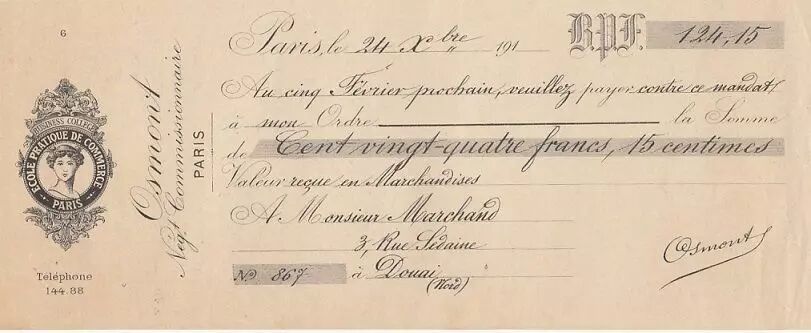 6
BUSINESS COLLEGE
ECOLE PRATIQUE DE COMMERCE
PARIS
Téléphone
144.88
Osmont
Négt Commissionnaire
PARIS
Paris, le 24 Xbre 191
B.P.F. 124,15
Au cinq Février prochain, veuillez payer contre ce mandat
à mon Ordre la Somme
de Cent vingt-quatre francs, 15 centimes
Valeur reçue en Marchandises
A Monsieur Marchand
3, Rue Sédaine
No 867 à Douai
(Nord)
Osmont